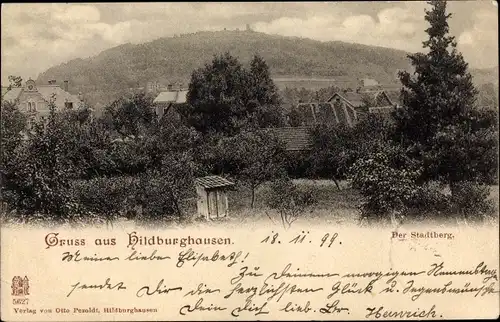 Gruss aus Hildburghausen. 18. 11. 99.
Der Stadtberg.
Meiner lieben Elisabeth!
Zu Deinem morgigen Namenstag
sendet Dir die herzlichsten Glück u. Segenswünsche
Dein Dich lieb. Br. Heinrich.
5627
Verlag von Otto Pezoldt, Hildburghausen